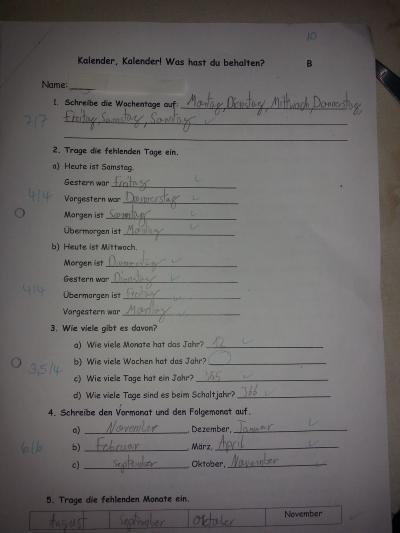 10
Kalender, Kalender! Was hast du behalten? B
Name:
1. Schreibe die Wochentage auf: Montag, Dienstag, Mittwoch, Donnerstag,
7/7 Freitag, Samstag, Sonntag
2. Trage die fehlenden Tage ein.
a) Heute ist Samstag.
Gestern war Freitag
4/4 Vorgestern war Donnerstag
Morgen ist Sonntag
Übermorgen ist Montag
b) Heute ist Mittwoch.
Morgen ist Donnerstag
Gestern war Dienstag
4/4 Übermorgen ist Freitag
Vorgestern war Montag
3. Wie viele gibt es davon?
a) Wie viele Monate hat das Jahr? 12
3,5/4 b) Wie viele Wochen hat das Jahr?
c) Wie viele Tage hat ein Jahr? 365
d) Wie viele Tage sind es beim Schaltjahr? 366
4. Schreibe den Vormonat und den Folgemonat auf.
a) November, Dezember, Januar
6/6 b) Februar, März, April
c) September, Oktober, November
5. Trage die fehlenden Monate ein.
August September Oktober November